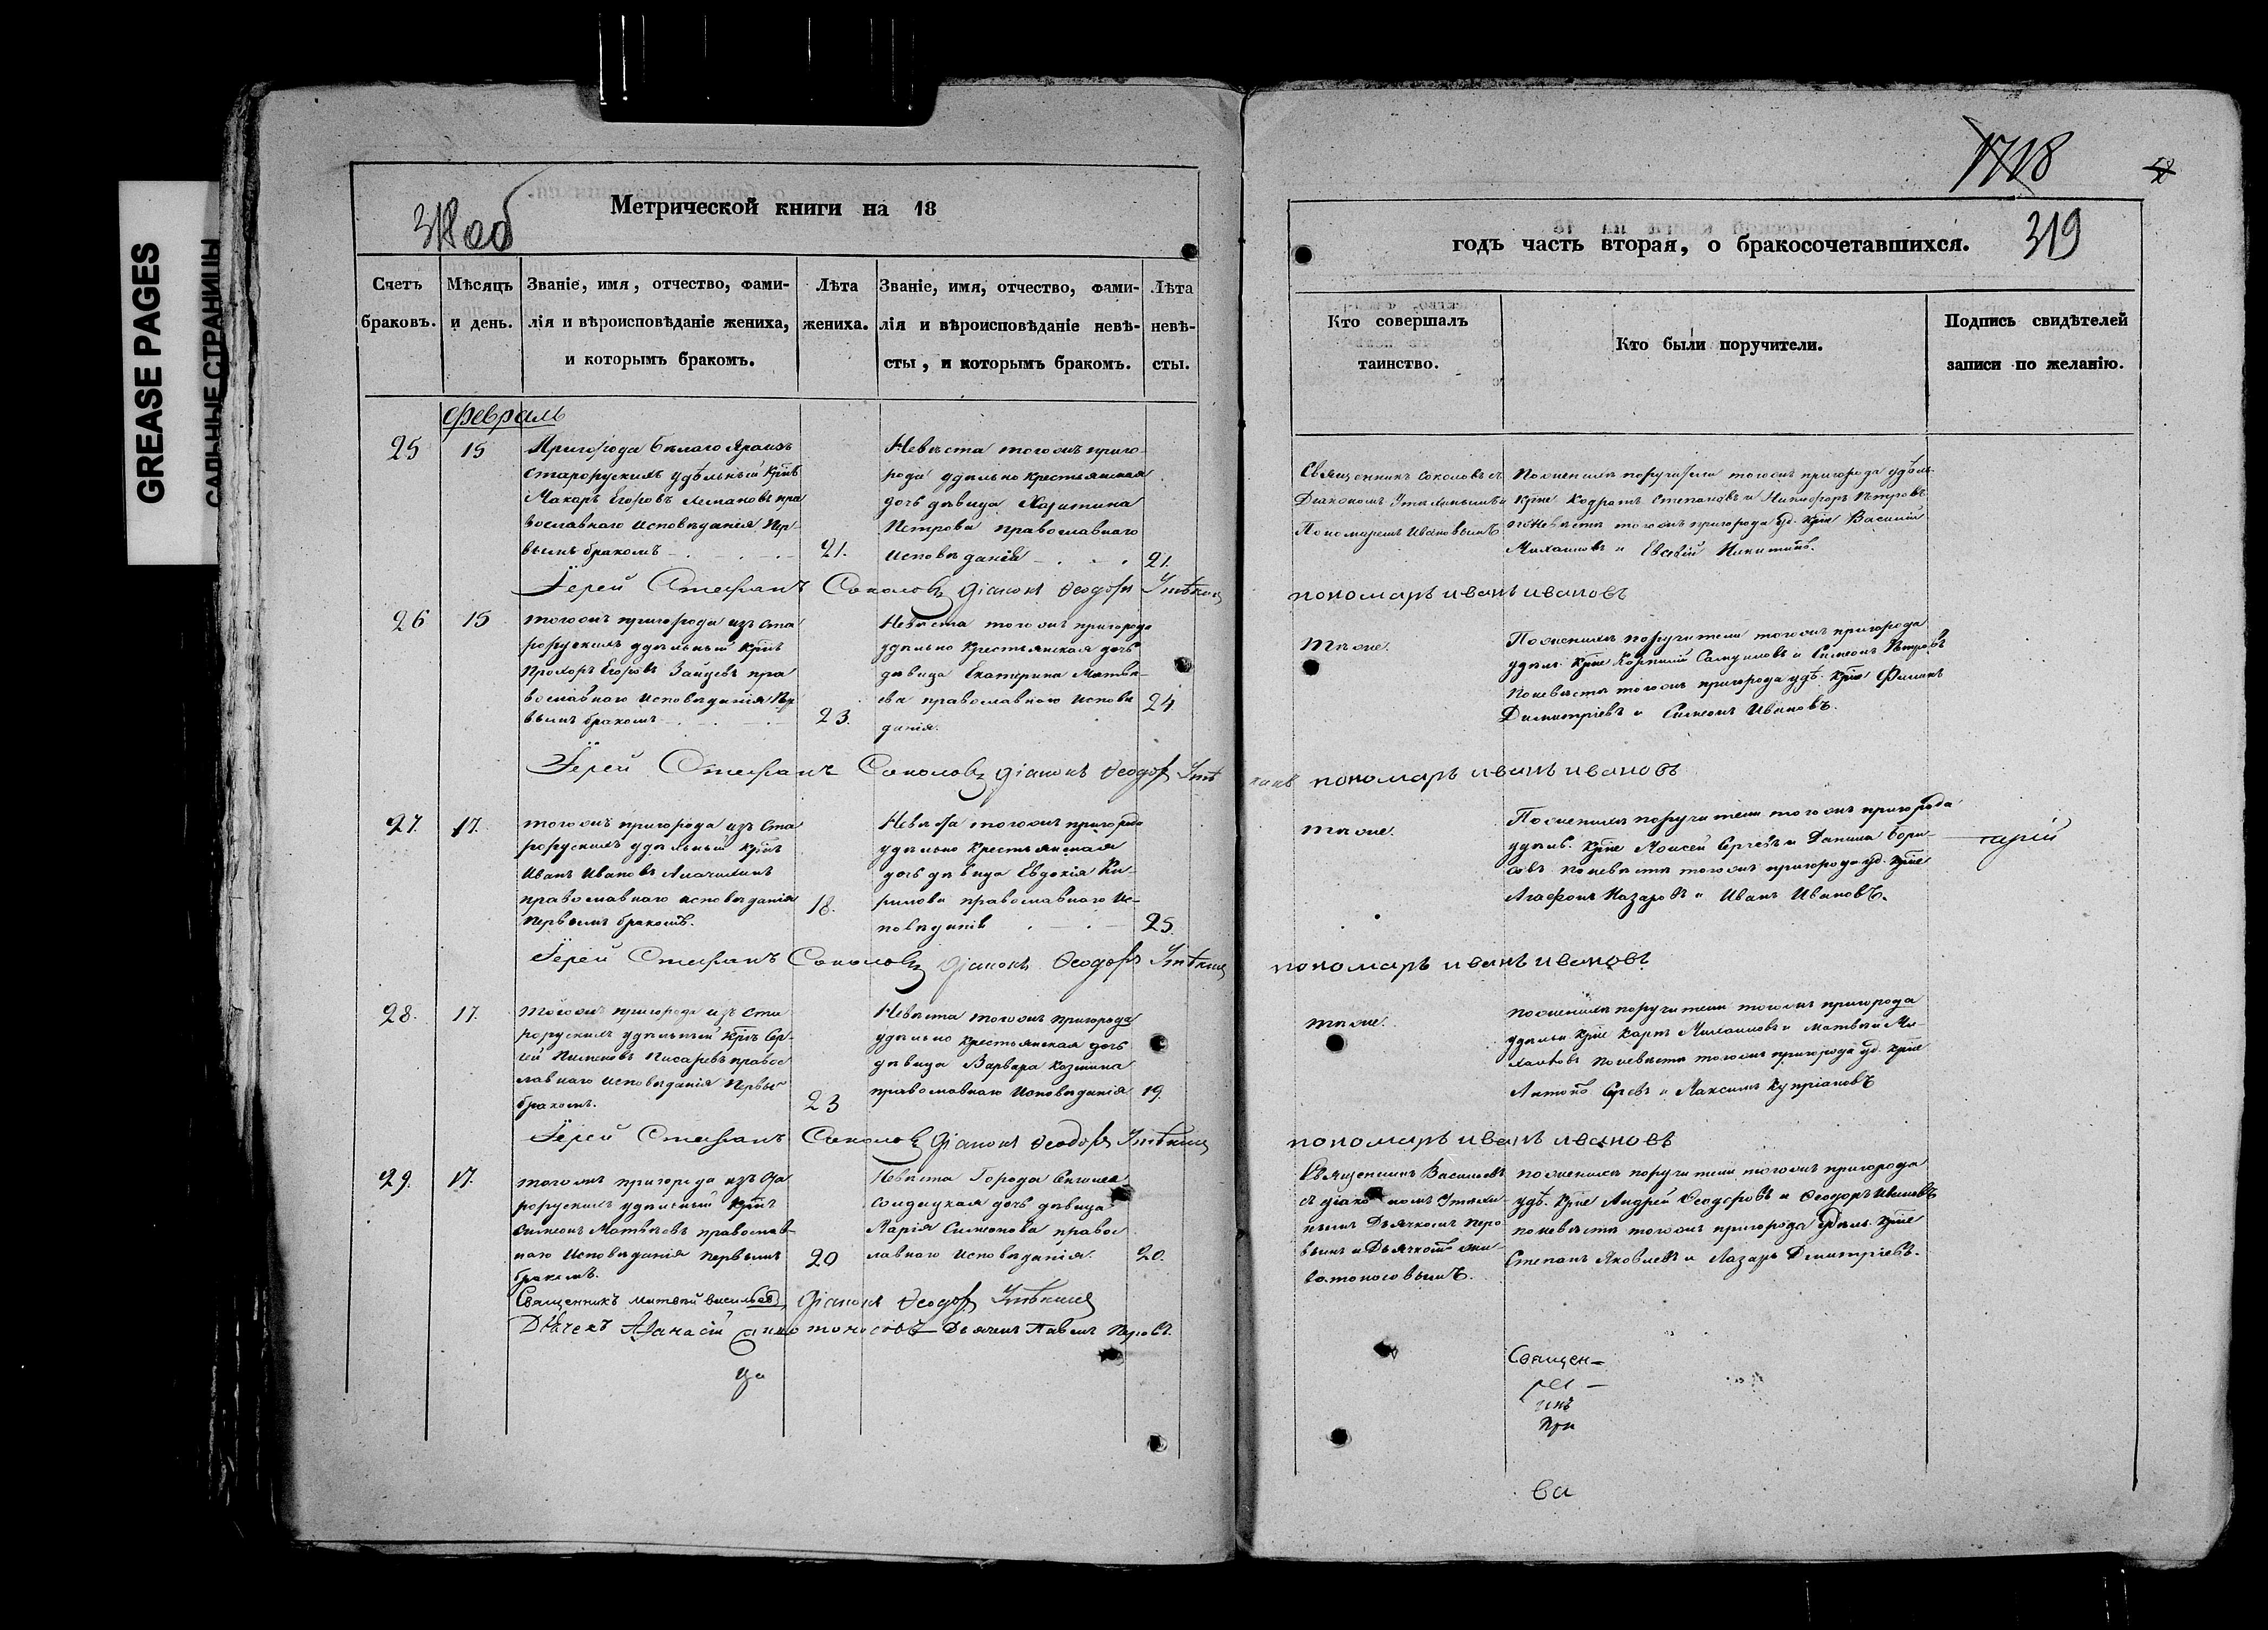 GREASE PAGES
САЛЬНЫЕ СТРАНИЦЫ
318 об
Метрической книги на 18
Счетъ браковъ.
Мѣсяцъ и день.
Званіе, имя, отчество, фами-
лія и вѣроисповѣданіе жениха,
и которымъ бракомъ.
Лѣта жениха.
Званіе, имя, отчество, фами-
лія и вѣроисповѣданіе невѣ-
сты, и которымъ бракомъ.
Лѣта невѣ-
сты.
Февраль
25
15
Пригорода Бѣлаго Яра изъ
старорускихъ удѣльный крнъ
Макаръ Егоровъ пра
вославнаго исповѣданія пер-
вымъ бракомъ
21.
Невѣста того жъ приго-
рода удѣльно крестьянская
дочь дѣвица Харитина
Петрова православнаго
исповѣданія
21.
Іерей Стефанъ Соколовъ діаконъ Ѳеодоръ
26
15
того жъ пригорода изъ ста
рорускихъ удѣльный крнъ
Прохоръ Егоровъ Зайцевъ пра
вославнаго исповѣданія пер
вымъ бракомъ
23.
Невѣста того жъ пригорода
удѣльно крестьянская дочь
дѣвица Екатерина Матвѣ-
ева православного исповѣ
данія.
24
Іерей Стефанъ Соколовъ діаконъ Ѳеодоръ
27.
17.
того жъ пригорода изъ ста
рорускихъ удѣльный крнъ
Иванъ Ивановъ
православнаго исповѣданія
первымъ бракомъ.
18.
Невѣста того жъ пригорода
удѣльно крестьянская
дочь дѣвица Евдокія Ки-
рилова православнаго ис-
повѣданія
25.
Іерей Стефанъ Соколовъ діаконъ Ѳеодоръ
28.
17.
того жъ пригорода изъ ста
рорускихъ удѣльный крнъ Сер-
гей Пименовъ Писаревъ правос
лавнаго исповѣданія первы
бракомъ.
23
Невѣста того жъ пригорода
удѣльно крестьянская дочь
дѣвица Варвара Козмина
православнаго исповѣданія
19.
Іерей Стефанъ Соколовъ діаконъ Ѳеодоръ
29.
17.
того жъ пригорода изъ ста
рорускихъ удѣльный крнъ
Симеонъ Матвѣевъ православ-
наго исповѣданія первымъ
бракомъ.
20
Невѣста Города Сенгилея
солдацкая дочь дѣвица
Марія Симеонова правос
лавнаго исповѣданія.
20.
Священникъ Матвей Васильевъ діаконъ Ѳеодоръ
Дьячекъ Афанасій Дьячекъ Павелъ
1718
319
годъ часть вторая, о бракосочетавшихся.
Кто совершалъ таинство.
Кто были поручители.
Подпись свидѣтелей
записи по желанію.
Священникъ Соколовъ съ
Діакономъ
Пономаремъ Ивановымъ
По женихѣ поручители того жъ пригорода удѣль
крне Кодратъ Степановъ и Никифоръ Петровъ
по невѣстѣ того жъ пригорода уд. крне Василій
Михаиловъ и Никитинъ.
пономарь иванъ ивановъ
тѣ же.
По женихѣ поручители того жъ пригорода
удѣль. крне Корнилій Самуиловъ и Симеонъ Петровъ
По невѣстѣ того жъ пригорода удѣ. крне Филипъ
Димитріевъ и Симеонъ Ивановъ.
пономарь иванъ ивановъ
тѣ же.
По женихѣ поручители того жъ пригорода
удѣль. крне Моисей Сергѣевъ и Данила Бори-
совъ по невѣстѣ того жъ пригорода уд. крне
Агафонъ Назаровъ и Иванъ Ивановъ.
пономарь иванъ ивановъ
тѣ же.
по женихѣ поручители того жъ пригорода
удѣльн крне Карпъ Михаиловъ и Матвей Ми-
хаиловъ по невѣстѣ того жъ пригорода уд. крне
Антонъ Сергѣевъ и Максимъ Купріановъ
пономарь иванъ ивановъ
Священникъ Васильевъ
съ діакономъ
Дьячкомъ
и Дьячкомъ
по женихѣ поручители того жъ пригорода
удѣ. крне Андрей Ѳеодоровъ и Ѳеодоръ Ивановъ
по невѣстѣ того жъ пригорода удѣль. крне
Степанъ Яковлевъ и Лазарь Димитріевъ.
Священ-